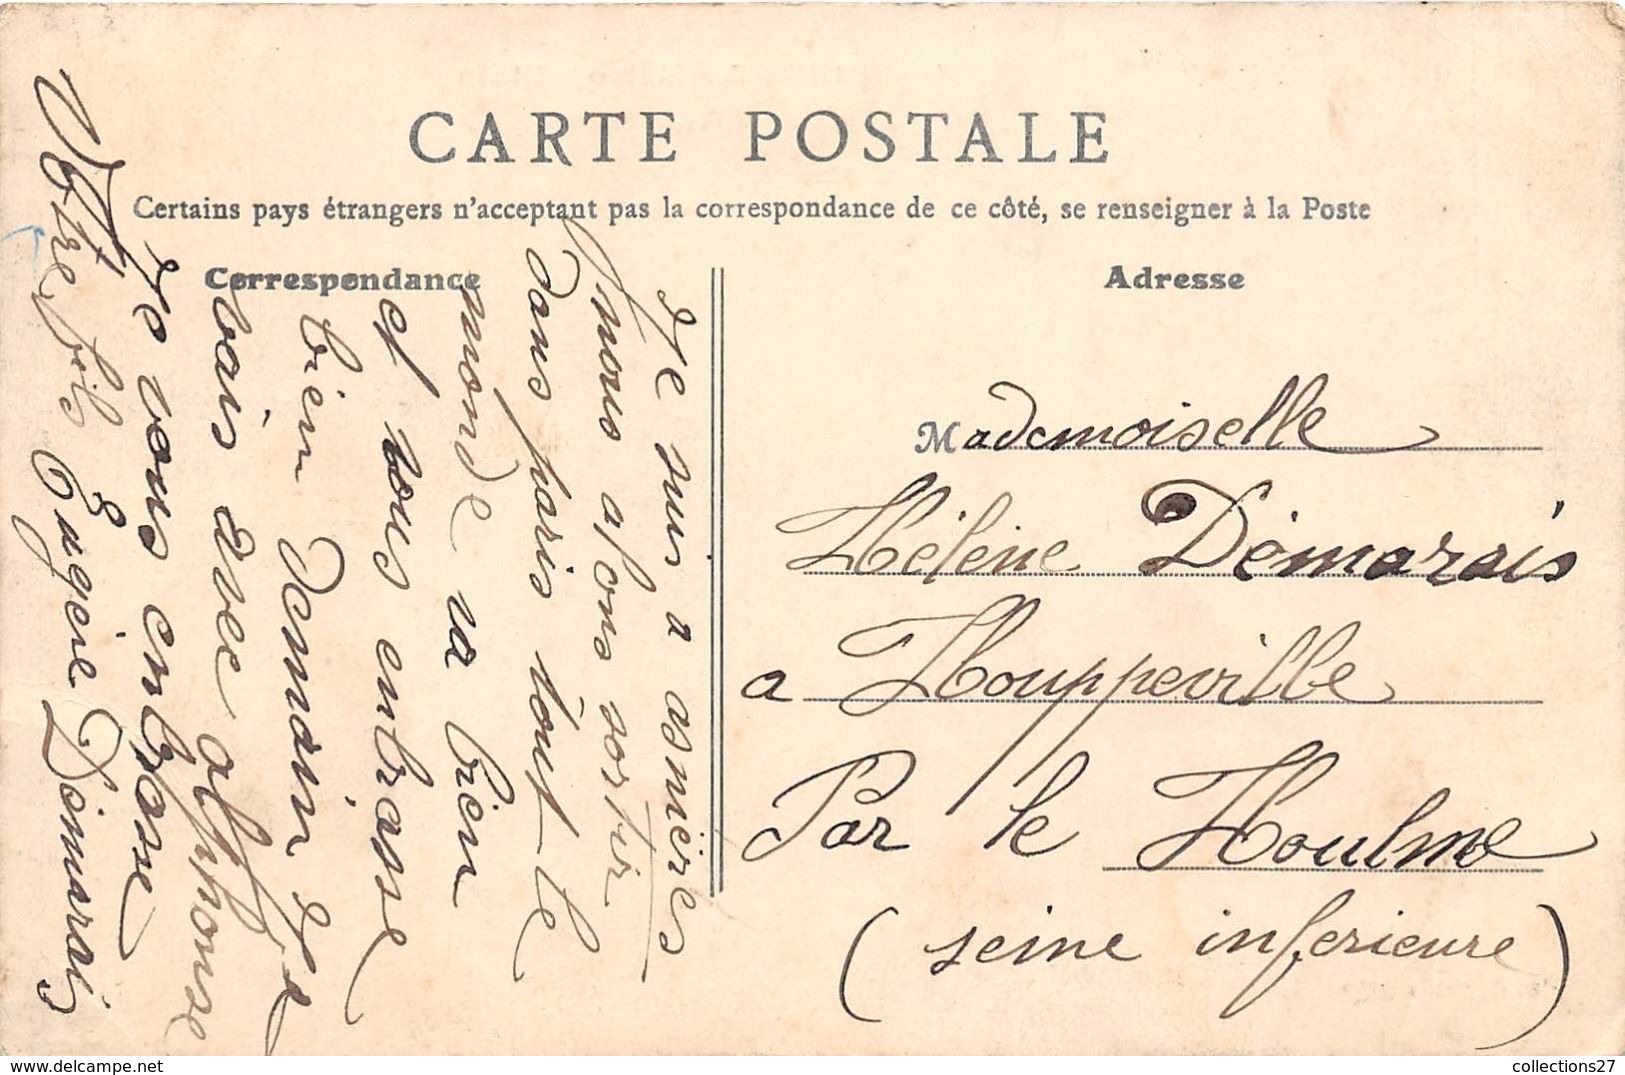 CARTE POSTALE
Certains pays étrangers n'acceptant pas la correspondance de ce côté, se renseigner à la Poste
Correspondance
Adresse
Je suis a asnières
nous allons sortir
dans paris tout le
monde va bien
et vous embrasse
bien demain Je
vais avec alphonse
Je vous embrase
Votre fils Eugène Démarais
Mademoiselle
Hélène Démarais
a Houppeville
Par le Houlme
(seine inferieure)
collections27